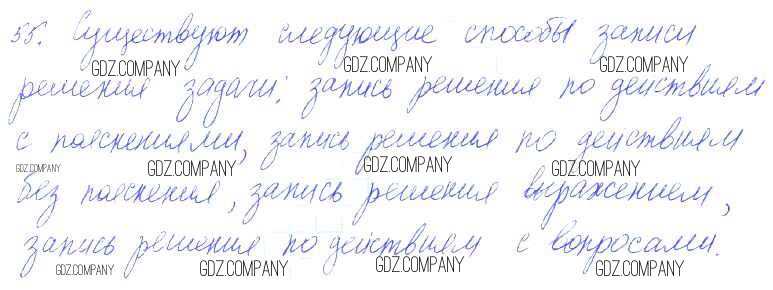 55. Существуют следующие способы записи
GDZ.COMPANY GDZ.COMPANY GDZ.COMPANY
решения задачи: запись решения по действиям
GDZ.COMPANY GDZ.COMPANY
с пояснениями, запись решения по действиям
GDZ.COMPANY GDZ.COMPANY GDZ.COMPANY GDZ.COMPANY
без пояснения, запись решения выражением,
GDZ.COMPANY GDZ.COMPANY GDZ.COMPANY
запись решения по действиям с вопросами.
GDZ.COMPANY GDZ.COMPANY GDZ.COMPANY GDZ.COMPANY